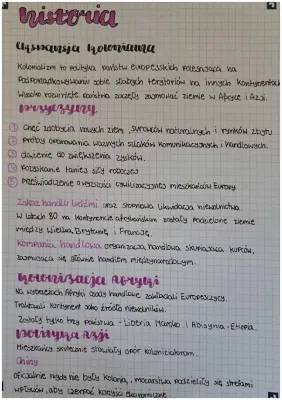 historia
Ekspansja kolonialna
Kolonializm to polityka państw europejskich polegająca na
podporządkowywaniu sobie słabych terytoriów na innych kontynentach
Wysoko rozwinięte państwa zaczęły zajmować ziemie w Afryce i Azji.
przyczyny
① chęć zdobycia nowych ziem, surowców naturalnych i rynków zbytu
② próby opanowania ważnych szlaków komunikacyjnych i handlowych.
③ dążenie do zwiększenia zysków.
④ pozyskanie taniej siły roboczej
⑤ przeświadczenie o wyższości cywilizacyjnej mieszkańców Europy
Zakaz handlu ludźmi oraz stopniowa likwidacja niewolnictwa.
W latach 80 na kontynencie afrykańskim zostały podzielone ziemie
między Wielką Brytanię, i Francję,
Kompania handlowa organizacja handlowa skupiająca kupców,
zajmująca się głównie handlem międzynarodowym.
Kolonizacja Afryki
Na wybrzeżach Afryki osady handlowe zakładali Europejczycy.
Traktowali kontynent jako źródło niewolników.
Zostały tylko trzy państwa - Liberia Maroko i Abisynia - Etiopia.
polityka Azji
Mieszkańcy skutecznie stawiały opór kolonizatorom.
Chiny
oficjalnie nigdy nie były kolonią, mocarstwa podzieliły się strefami
wpływów, aby czerpać korzyści ekonomiczne